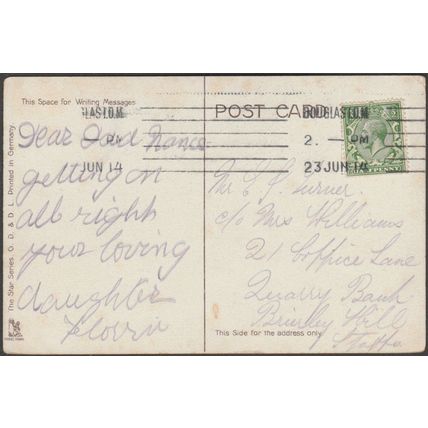 This Space for Writing Messages
POST CARD
LAS I.O.M.
PM
JUN 14
DOUGLAS I.O.M.
2. PM
23 JUN 14
The Star Series. G. D. & D. L. Printed in Germany
Dear Dad
getting on
all right
your loving
daughter
Florrie
Mr Turner
c/o Mrs Williams
21 Coppice Lane
Quarry Bank
Brierley Hill
Staffs
This Side for the address only.